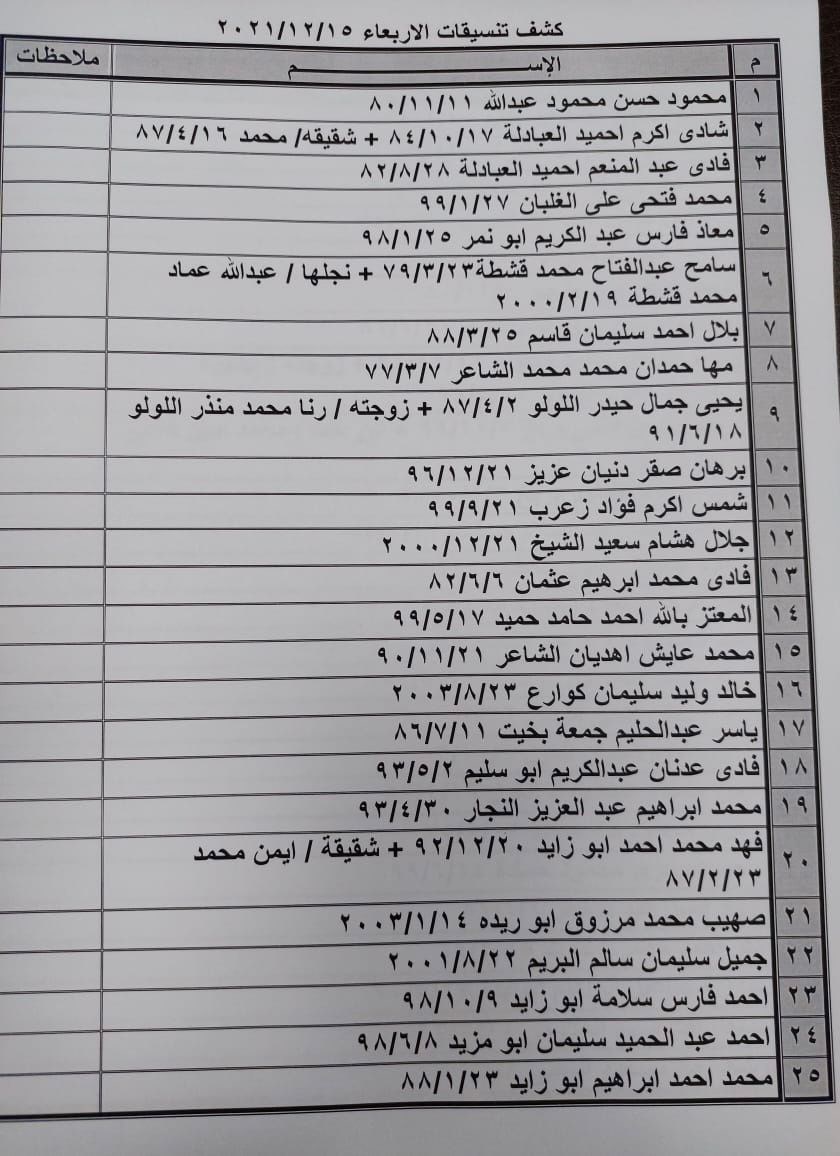 كشف تنسيقات الاربعاء ٢٠٢١/١٢/١٥
م الإسم ملاحظات
١ محمود حسن محمود عبدالله ٨٠/١١/١١
٢ شادى اكرم احميد العبادلة ٨٤/١٠/١٧ + شقيقه/ محمد ٨٧/٤/١٦
٣ فادى عبد المنعم احميد العبادلة ٨٢/٨/٢٨
٤ محمد فتحى على الغلبان ٩٩/١/٢٧
٥ معاذ فارس عبد الكريم ابو نمر ٩٨/١/٢٥
٦ سامح عبدالفتاح محمد قشطة٧٩/٣/٢٣ + نجلها / عبدالله عماد
محمد قشطة ٢٠٠٠/٢/١٩
٧ بلال احمد سليمان قاسم ٨٨/٣/٢٥
٨ مها حمدان محمد محمد الشاعر ٧٧/٣/٧
٩ يحيى جمال حيدر اللولو ٨٧/٤/٢ + زوجته / رنا محمد منذر اللولو
٩١/٦/١٨
١٠ برهان صقر دنيان عزيز ٩٦/١٢/٢١
١١ شمس اكرم فؤاد زعرب ٩٩/٩/٢١
١٢ جلال هشام سعيد الشيخ ٢٠٠٠/١٢/٢١
١٣ فادى محمد ابرهيم عثمان ٨٢/٦/٦
١٤ المعتز بالله احمد حامد حميد ٩٩/٥/١٧
١٥ محمد عايش اهديان الشاعر ٩٠/١١/٢١
١٦ خالد وليد سليمان كوارع ٢٠٠٣/٨/٢٣
١٧ ياسر عبدالحليم جمعة بخيت ٨٦/٧/١١
١٨ فادى عدنان عبدالكريم ابو سليم ٩٣/٥/٢
١٩ محمد ابراهيم عبد العزيز النجار ٩٣/٤/٣٠
٢٠ فهد محمد احمد ابو زايد ٩٢/١٢/٢٠ + شقيقة / ايمن محمد
٨٧/٢/٢٣
٢١ صهيب محمد مرزوق ابو ريده ٢٠٠٣/١/١٤
٢٢ جميل سليمان سالم البريم ٢٠٠١/٨/٢٢
٢٣ احمد فارس سلامة ابو زايد ٩٨/١٠/٩
٢٤ احمد عبد الحميد سليمان ابو مزيد ٩٨/٦/٨
٢٥ محمد احمد ابراهيم ابو زايد ٨٨/١/٢٣